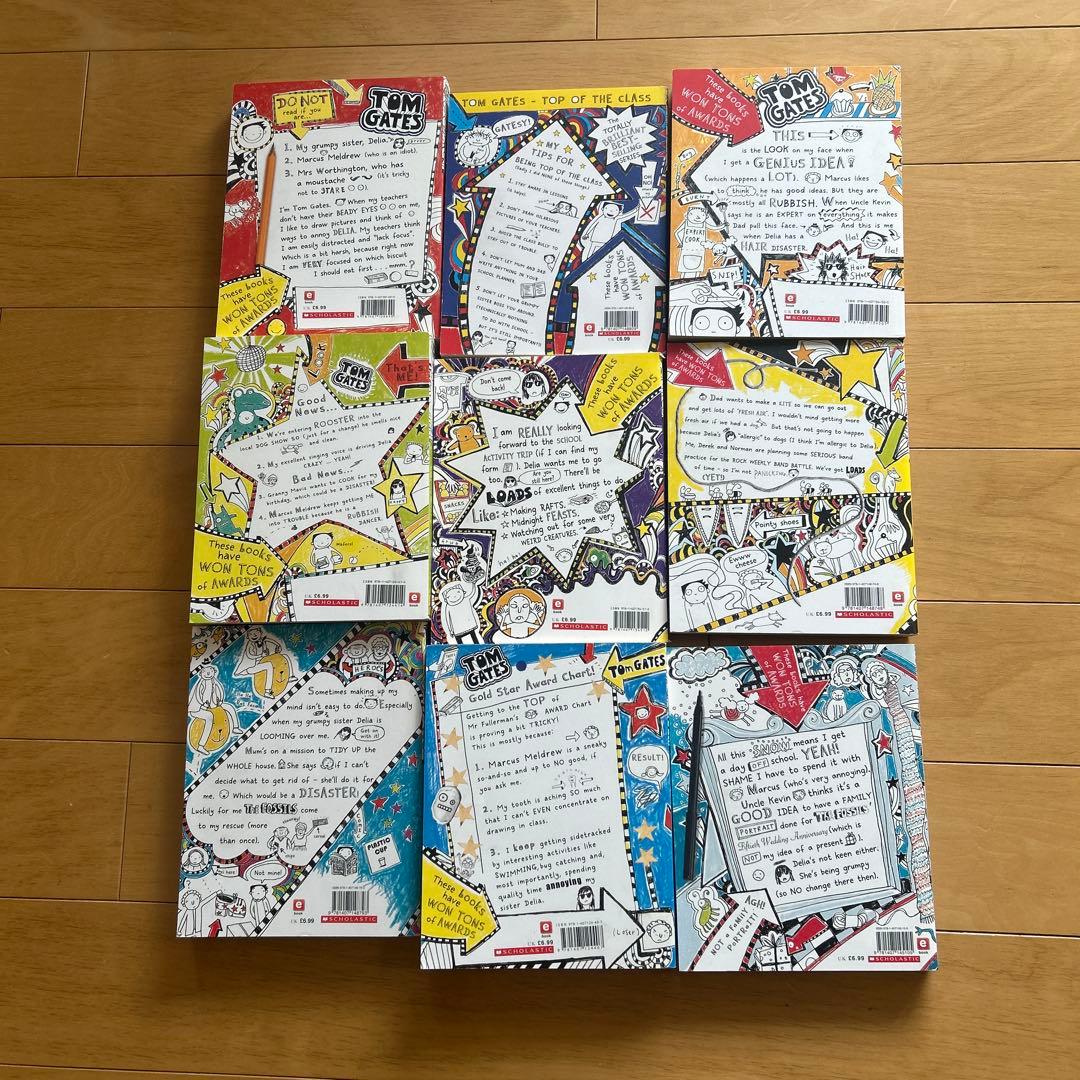 DO NOT
read if you
are...
TOM
GATES
1. My grumpy sister, Delia.
2. Marcus Meldrew (who is an idiot).
3. Mrs Worthington, who has
a moustache (it's tricky
not to STARE).
I'm Tom Gates. When my teachers
don't have their BEADY EYES on me,
I like to draw pictures and think of
ways to annoy DELIA. My teachers think
I am easily distracted and "lack focus".
Which is a bit harsh, because right now
I am VERY focused on which biscuit
I should eat first... mmm.?
These books
have
WON TONS
of AWARDS
e
book
UK £6.99
SCHOLASTIC
TOM GATES - TOP OF THE CLASS
GATESY!
The
TOTALLY
BRILLIANT
BEST
SELLING
SERIES
MY
TIPS FOR
BEING TOP OF THE CLASS
1. STAY AWAKE IN LESSONS
2. DON'T DRAW HILARIOUS
PICTURES OF YOUR TEACHERS
3. AVOID THE CLASS BULLY TO
STAY OUT OF TROUBLE
4. DON'T LET MUM AND DAD
WRITE ANYTHING IN YOUR
SCHOOL PLANNER.
5. DON'T LET YOUR GRUMPY
SISTER BOSS YOU AROUND
(TECHNICALLY NOTHING
TO DO WITH SCHOOL -
BUT IT'S STILL IMPORTANT)
OH NO!
These books
have
WON TONS
of AWARDS
e
book
SCHOLASTIC
UK £6.99
These books
have
WON TONS
of AWARDS
TOM
GATES
THIS
is the LOOK on my face when
I get a GENIUS IDEA
(which happens a LOT). Marcus likes
to think he has good ideas. But they are
mostly all RUBBISH. When Uncle Kevin
says he is an EXPERT on everything it makes
Dad pull this face. And this is me
when Delia has a
HAIR DISASTER.
Ha!
Ha!
BURNT
EXPERT
COOK
SNIP!
Hair
SHOCK
e
book
UK £6.99
SCHOLASTIC
LOOK
TOM
GATES
That's
ME!
Good
News...
1. We're entering ROOSTER into the
local DOG SHOW SO (just for a change) he smells nice
and clean.
2. My excellent singing voice is driving Delia
CRAZY. YEAH!
Bad News...
Granny Mavis wants to COOK for my
birthday, which could be a DISASTER!
4. Marcus Meldrew keeps getting ME
into TROUBLE because he is a
RUBBISH
DANCER.
These books
have
WON TONS
of AWARDS
e
book
UK £6.99
SCHOLASTIC
Don't come
back!
These books
have
WON TONS
of AWARDS
I am REALLY looking
forward to the SCHOOL
ACTIVITY TRIP (if I can find my
form). Delia wants me to go
too. Are you
still here? There'll be
LOADS of excellent things to do
Like: Making RAFTS.
Midnight FEASTS.
Watching out for some very
WEIRD CREATURES.
SNACKS
e
book
UK £6.99
SCHOLASTIC
These books
have WON TONS
of AWARDS
Dad wants to make a KITE so we can go out
and get lots of "FRESH AIR". I wouldn't mind getting more
fresh air if we had a dog. But that's not going to happen
because Delia's "allergic" to dogs (I think I'm allergic to Delia).
Me, Derek and Norman are planning some SERIOUS band
practice for the ROCK WEEKLY BAND BATTLE. We've got LOADS
of time - so I'm not PANICKING.
(YET!)
Pointy shoes
Ewww
cheese
e
book
UK £6.99
SCHOLASTIC
HEROES
Sometimes making up my
mind isn't easy to do. Especially
when my grumpy sister Delia is
LOOMING over me.
Get on
with it!
Mum's on a mission to TIDY UP the
WHOLE house. She says if I can't
decide what to get rid of - she'll do it for
me. Which would be a DISASTER!
Luckily for me THE FOSSILS come
to my rescue (more
than once).
Not mine!
PLASTIC
CUP
e
book
UK £6.99
SCHOLASTIC
TOM
GATES
TOM GATES
Gold Star Award Chart!
Getting to the TOP of
Mr Fullerman's AWARD Chart
is proving a bit TRICKY!
This is mostly because:
1. Marcus Meldrew is a sneaky
so-and-so and up to NO good, if
you ask me.
2. My tooth is aching SO much
that I can't EVEN concentrate on
drawing in class.
3. I keep getting sidetracked
by interesting activities like
SWIMMING, bug catching and,
most importantly, spending
quality time annoying my
sister Delia.
RESULT!
These books
have
WON TONS
of AWARDS
(Loser)
e
book
UK £6.99
SCHOLASTIC
These books
have
WON TONS
of AWARDS
All this SNOW means I get
a day OFF school. YEAH!
SHAME I have to spend it with
Marcus (who's very annoying).
Uncle Kevin thinks it's a
GOOD IDEA to have a FAMILY
PORTRAIT done for THE FOSSILS'
Fiftieth Wedding Anniversary (which is
NOT my idea of a present).
Delia's not keen either.
She's being grumpy
(so NO change there then).
AGH!
NOT a FAMILY
PORTRAIT!
e
book
UK £6.99
SCHOLASTIC